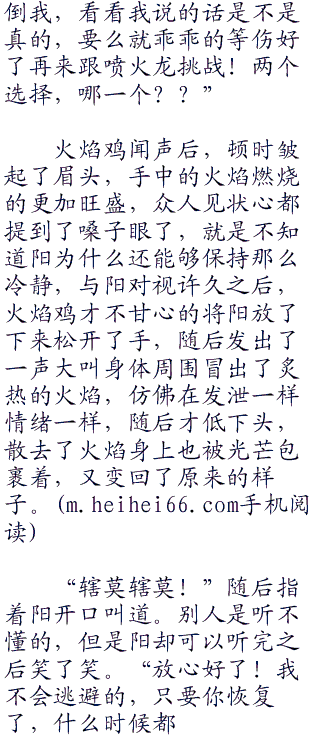 倒我，看看我说的话是不是
真的，要么就乖乖的等伤好
了再来跟喷火龙挑战！两个
选择，哪一个？？”
火焰鸡闻声后，顿时皱
起了眉头，手中的火焰燃烧
的更加旺盛，众人见状心都
提到了嗓子眼了，就是不知
道阳为什么还能够保持那么
冷静，与阳对视许久之后，
火焰鸡才不甘心的将阳放了
下来松开了手，随后发出了
一声大叫身体周围冒出了炙
热的火焰，仿佛在发泄一样
情绪一样，随后才低下头，
散去了火焰身上也被光芒包
裹着，又变回了原来的样
子。(m.heihei66.com手机阅
读)
“辖莫辖莫！”随后指
着阳开口叫道。别人是听不
懂的，但是阳却可以听完之
后笑了笑。“放心好了！我
不会逃避的，只要你恢复
了，什么时候都